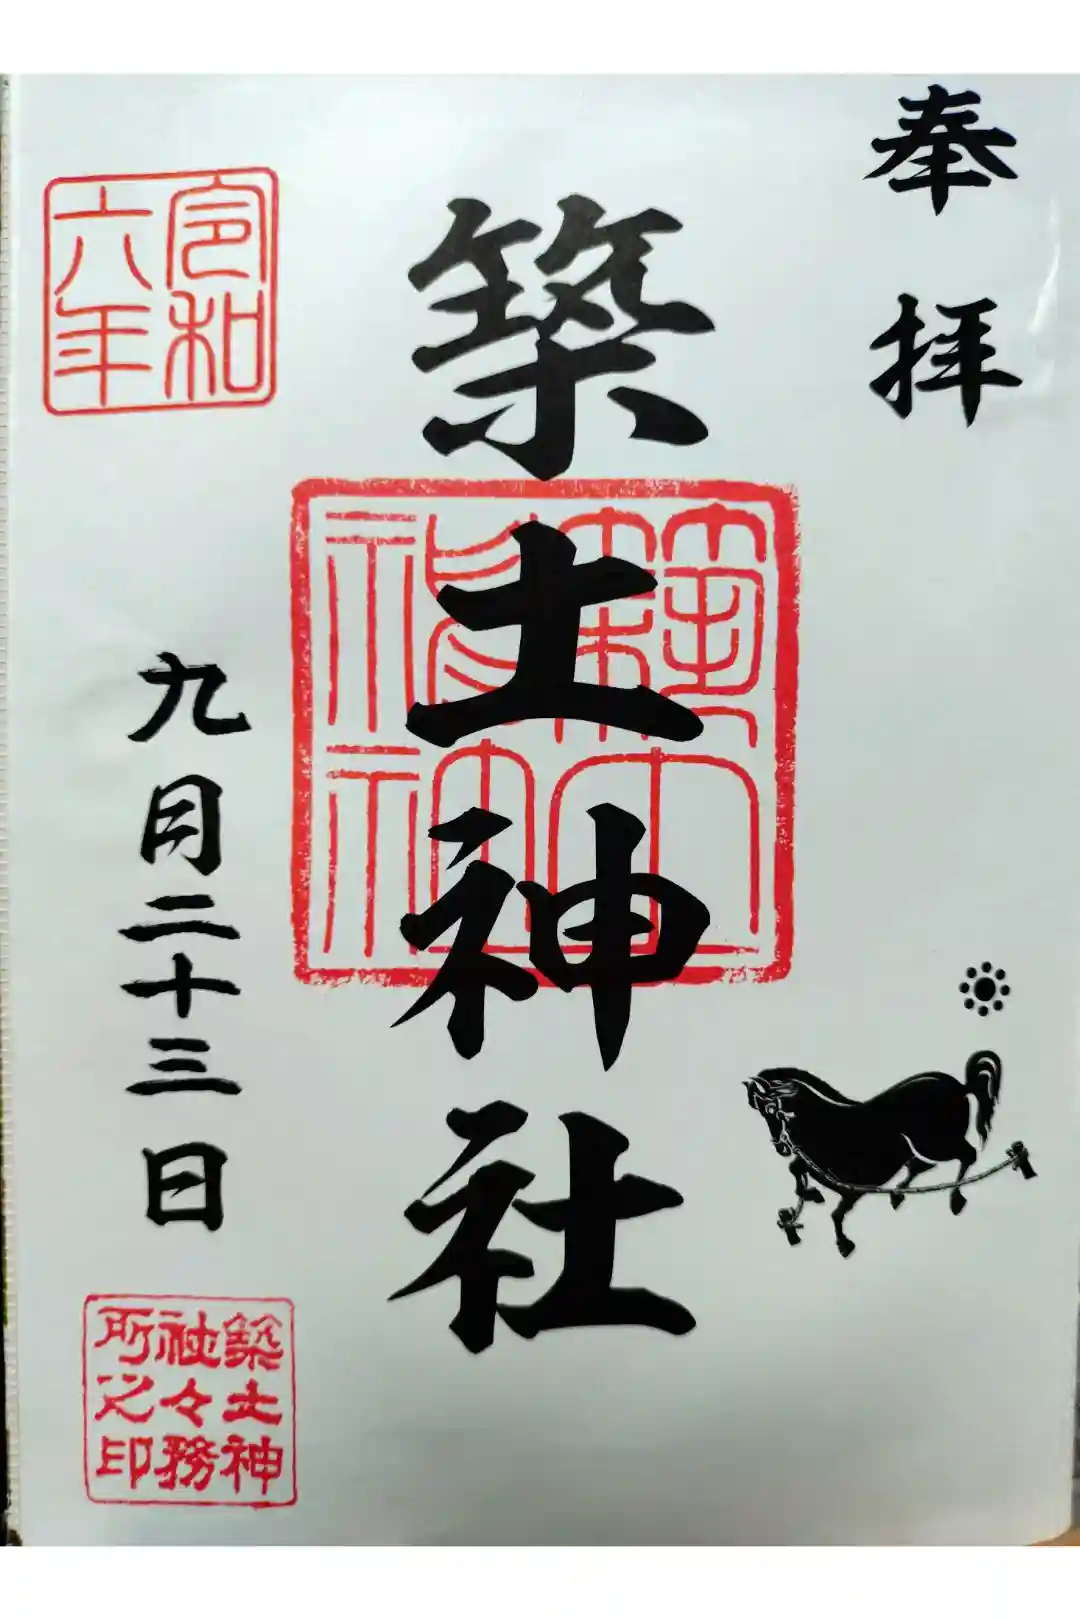 奉拝
築土神社
令和
六年
九月二十三日
築土神
社々務
所之印
築土
神社